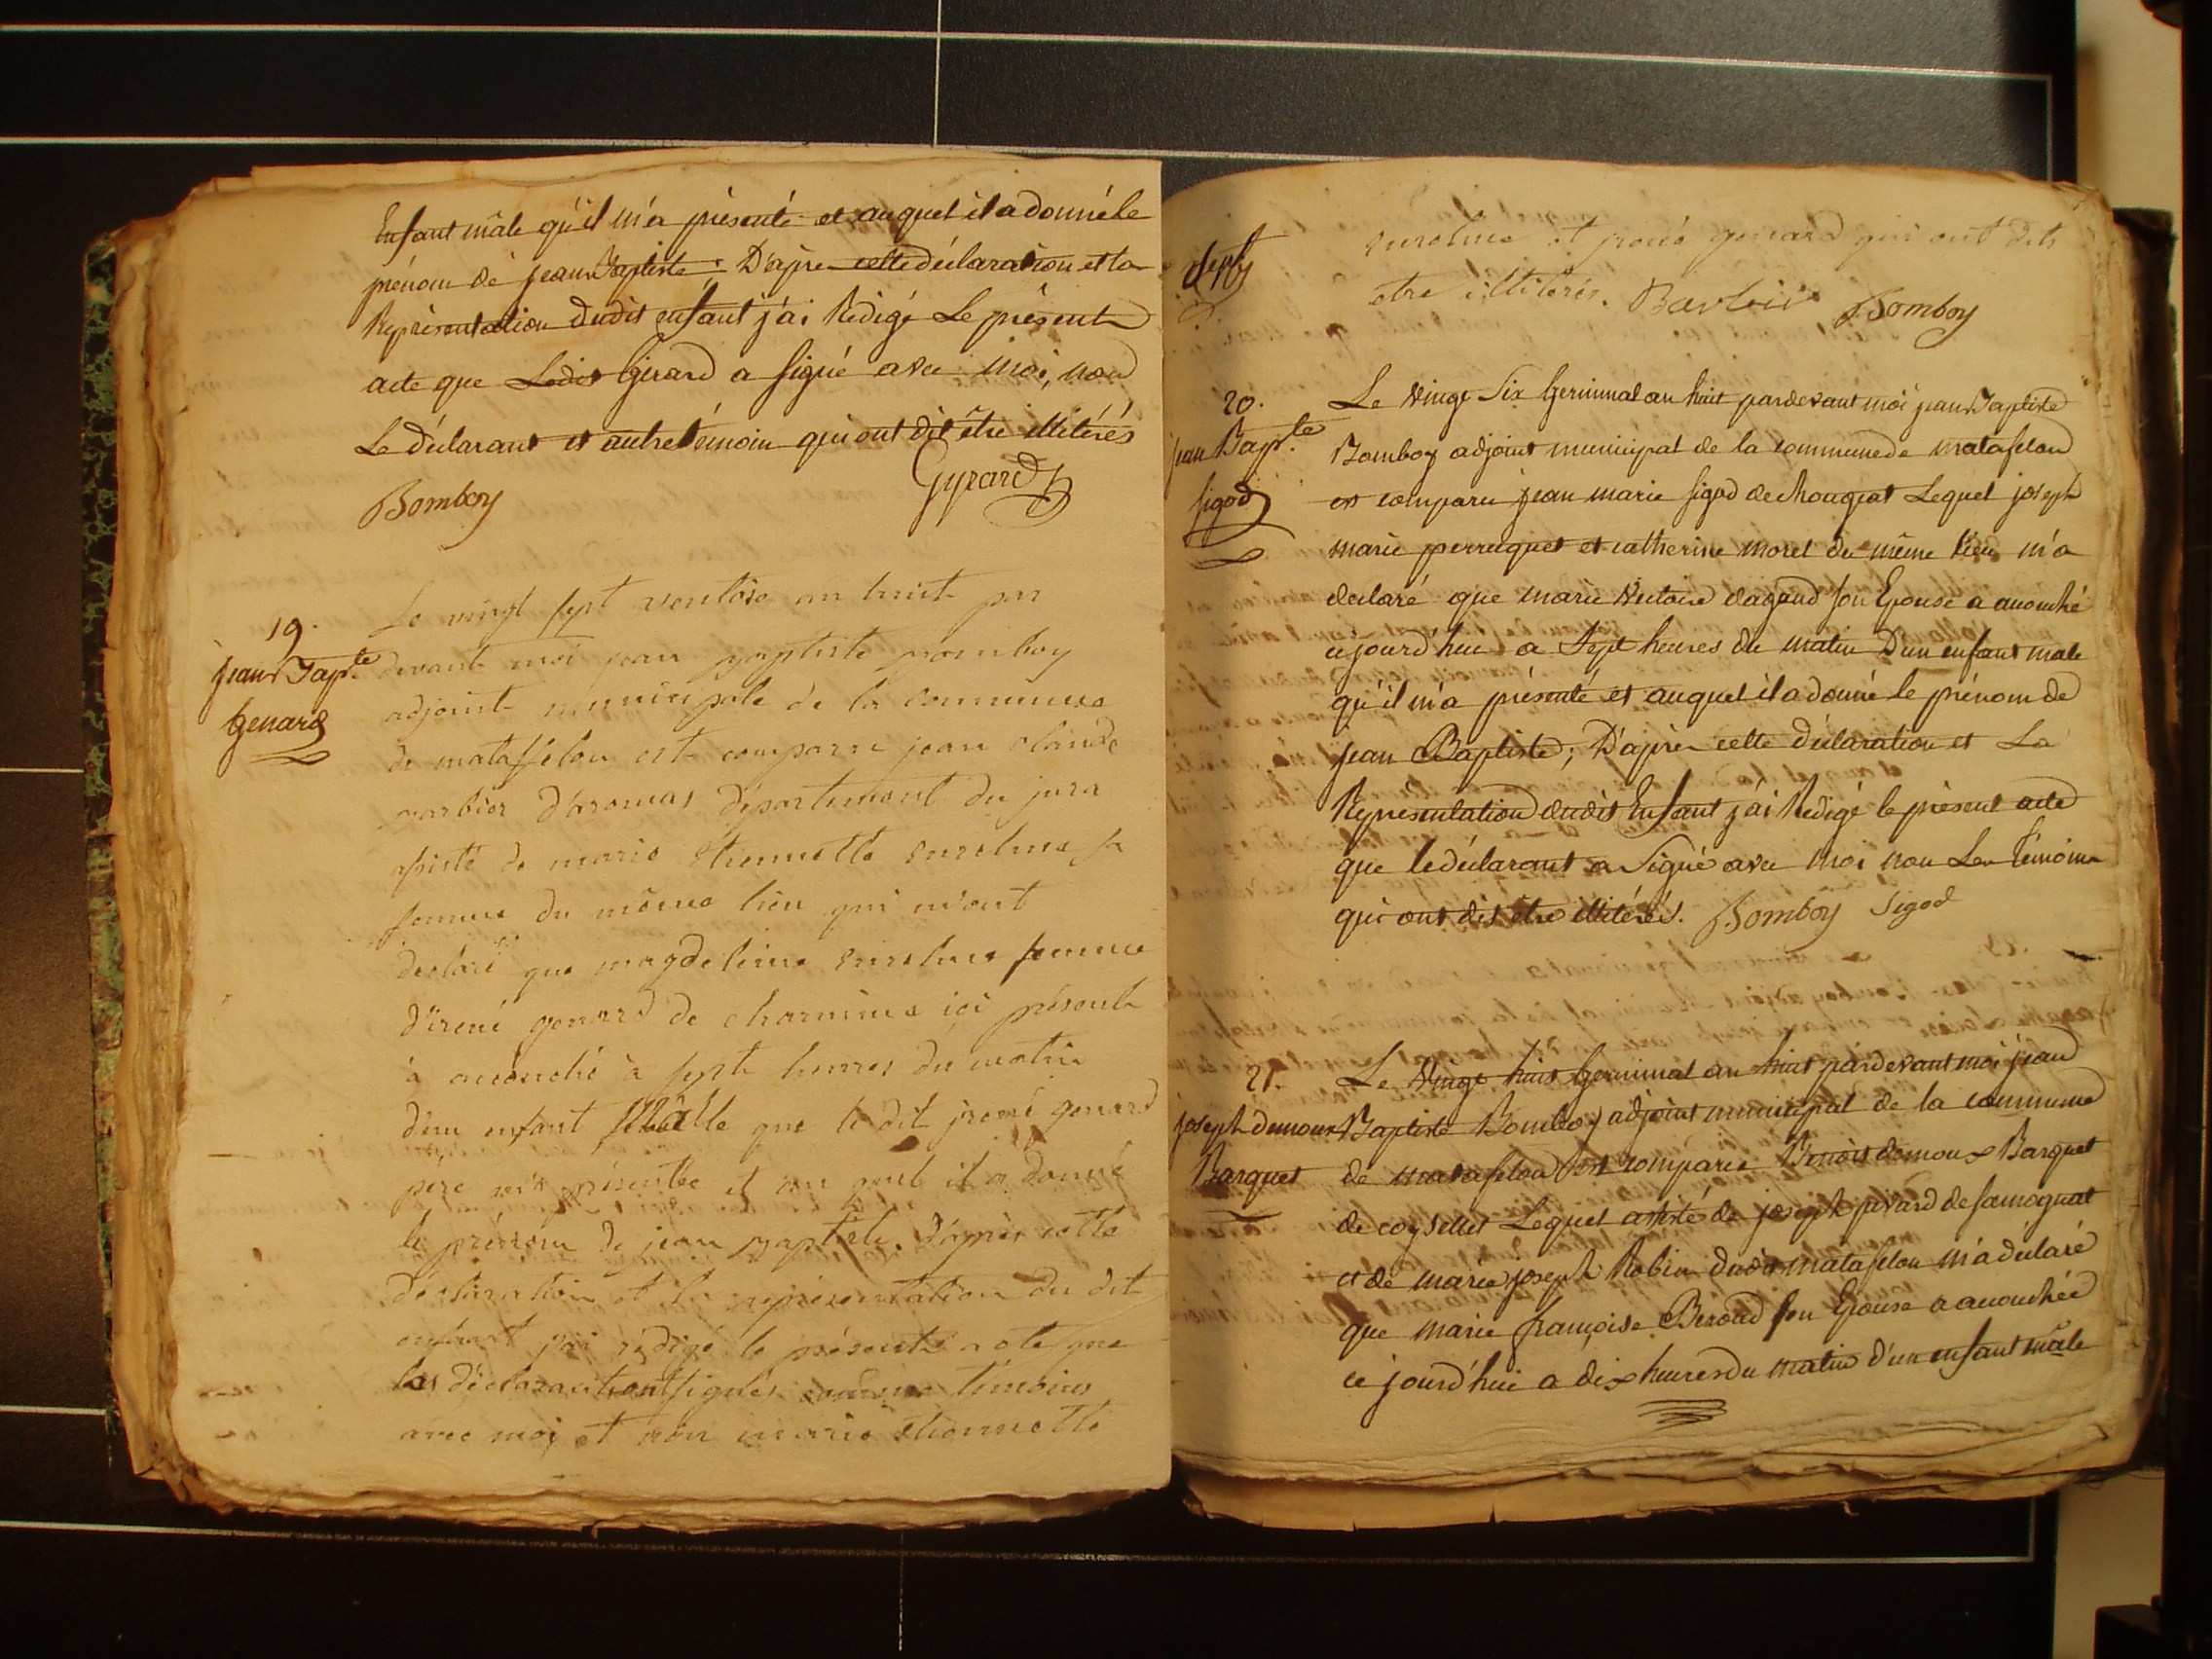 Enfant mâle qu'il m'a présenté et auquel il a donné le
prénom de jean Baptiste. D'après cette déclaration et la
Représentation dudit enfant j'ai Rédigé Le présent
acte que Ledit Girard a signé avec moi, non
Le déclarant et autre témoin qui ont dit être illitérés
Bomboy Gyrard
19.
jean Bapte
Genard
Le vingt sept ventôse an huit par
devant moi jean baptiste
adjoint municipale de la commune
de mataffelon est comparu jean claude
barbier d'aromas département du jura
assisté de marie étiennette sa
femme du même lieu qui m'ont
déclaré que magdeleine femme
d'irené genard de charmine ici présent
à accouché à sept heures du matin
d'un enfant mâle que le dit irené genard
père m'a présentée et au quel il a donné
le prénom de jean baptiste. d'après cette
déclaration et la représentation du dit
enfant j'ai rédigé le présent acte que
les déclarants ont signés comme témoins
avec moi et non marie étiennette
et genard qui ont dits
etre illiterés. Barbier Bomboy
20.
jean Bapte
sigod
Le Vingt Six Germinal an huit pardevant moi jean Baptiste
Bomboy adjoint municipal de la commune de matafelon
est comparu jean marie sigod de chougeat Lequel joseph
marie perruquet et catherine morel du même lieu m'a
declaré que marie Victoire dagand son Epouse a accouché
cejourd'hui a Sept heures du matin D'un enfant male
qu'il m'a présenté et auquel il a donné le prénom de
jean Baptiste; D'après cette déclaration et La
Représentation dudit Enfant j'ai Rédigé le présent acte
que le déclarant a Signé avec moi non Les témoins
qui ont dit être illitérés. Bomboy Sigod
21.
joseph demoux
Barquet
Le Vingt huit Germinal an huit pardevant moi jean
Baptiste Bomboy adjoint municipal de la commune
de matafelon est comparu Benoit demoux Barquet
de coyselles Lequel assisté de joseph pivard de samognat
et de marie joseph Robin dudit matafelon m'a déclaré
que marie françoise Beroud son Epouse a accouchée
ce jourd'hui a dix heures du matin d'un enfant mâle